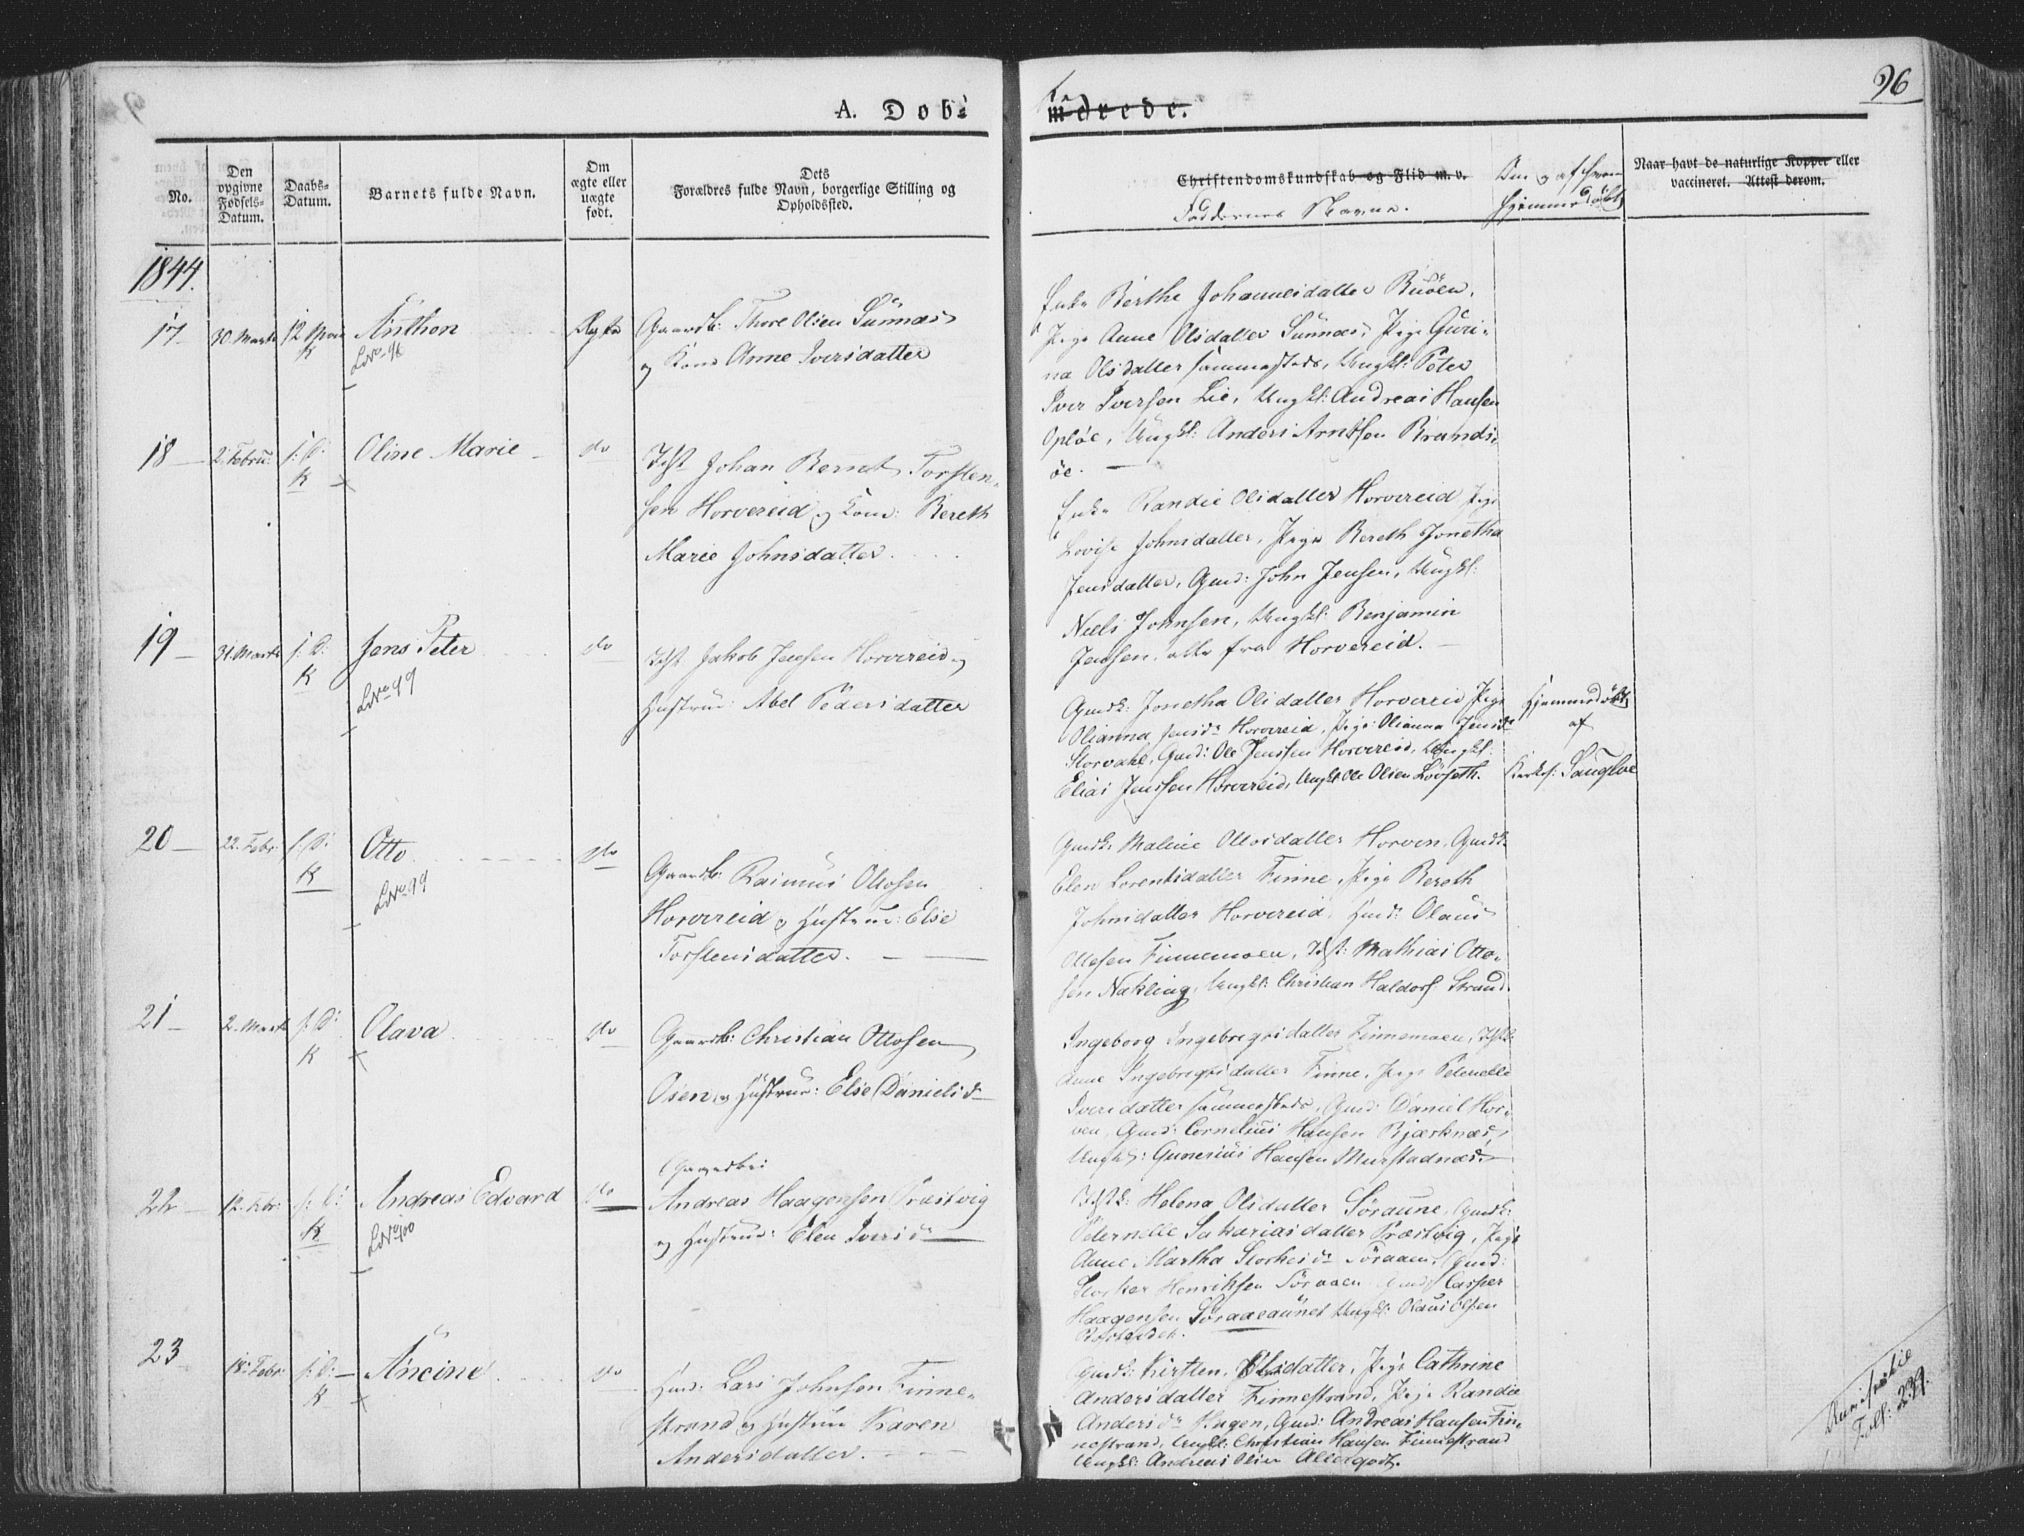 96
A. Døb-
mdrede.
No.
Den opgivne Fødsels-Datum.
Daabs-Datum.
Barnets fulde Navn.
Om ægte eller uægte født.
Dets
Forældres fulde Navn, borgerlige Stilling og
Opholdssted.
Christendomskundskab og Flid m. v.
Faddernes Navne.
Om og af hvem
hjemmedøbt
Naar havt de naturlige Kopper eller
vaccineret. Attest derom.
1844.
17
30. Marts
12 April
K
Anthon
LNo 96
Ægte
Gaardb: Thore Olsen Sünnæs
og Kone Anne Iversdatter
Enke Berthe Johannesdatter Buöen,
Pige Anne Olsdatter Sünnæs, Pige Guri-
na Olsdatter sammesteds, Ungk: Peter
Iver Iversen Lie, Ungk: Andreas Hansen
Opløe, Ungk: Anders Arntsen Brands-
øe.
18
2. Febru:
s: D:
K
Oline Marie
do
Johan Bernt Torsten-
sen Horvereid og Kone: Bereth
Marie Johnsdatter.
Enke Randie Olsdatter Horvereid, Pige
Lovise Johnsdatter, Pige Bereth Jonetha
Jensdatter, Gmd: John Jensen, Ungk:
Niels Johnsen, Ungk: Benjamin
Jensen, alle fra Horvereid.
19
31. Marts
s: D:
K
Jens Peter
LNo 99
do
Jakob Jensen Horvereid og
Hustrue: Abel Pedersdatter
Gmdk: Jonetha Olsdatter Horvereid, Pige
Olianna Jensdr Horvereid, Pige Olianna Jensdr
Gmd: Ole Jenssen Horvereid, Ungk:
Elias Jenssen Horvereid, Ungk Ole Olsen Lövseth.
Hjemmedøbt
af
Kirkes: Sangstue
20
22. Febr:
s: D:
K
Otto
LNo 99
do
Gaardb: Rasmus Olsosen
Horvereid og Hustrue: Else
Torstensdatter.
Gmdk: Malene Olsosdatter Horven, Gmdk
Elen Lorentsdatter Finne, Pige Bereth
Johnsdatter Horvereid, Gmd: Olaus
Olesen Finnemoen, Mathias Otto-
sen Nakling, Ungk: Christian Haldorf Strand.
21
2. Marts
s: D:
K
Olava
do
Gaardb: Christian Ottosen
Osen og Hustrue: Else Danielsd
Ingeborg Ingebregsdatter Finnemoen,
Anne Ingebregsdatter Finne, Pige Petenelle
Iversdatter sammesteds, Gmd: Daniel Hor-
ven, Gmd: Cornelius Hansen Bjærknæs,
Ungk: Gunerius Hansen Murstadnæs.
22
12. Febr:
s: D:
K
Andreas Edvard
LNo 100
do
Gaardbr:
Andreas Haagensen Præstvig
og Hustrue: Elen Iversdr
Helena Olsdatter Søraune, Gmdk:
Peternelle Sakariasdatter Præstvig, Pige
Anne Martha Storkersdr Søraaen, Gmd:
Storker Henriksen Söraaen Gmd: Casper
Haagensen Søraaeaunet Ungk: Olaus Olsen
23
18. Febr
s: D:
K
Ancine
do
Gmd: Lars Johnsen Finne-
strand og Hustrue Karen
Andersdatter.
Gmdk: Kirsten Olsdatter, Pige Cathrine
Andersdatter Finnestrand, Pige Randie
Andersdr Hagen, Gmd: Andreas Hansen Fin-
nestrand, Ungk: Christian Hansen Finnestrand
Ungk: Andreas Olsen
Foll: 239.